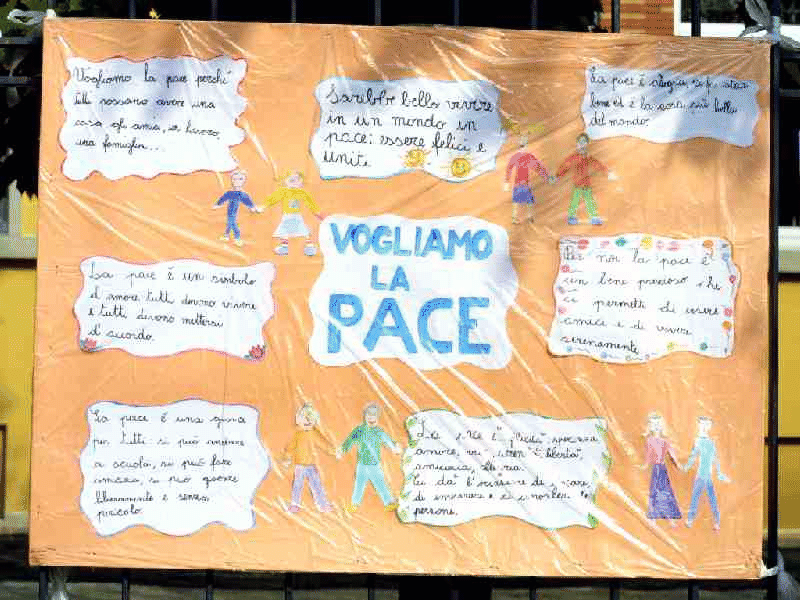 Vogliamo la pace perchè
tutti possano avere una
casa, gli amici, un lavoro,
una famiglia...
Sarebbe bello vivere
in un mondo in
pace: essere felici e
uniti.
La pace è allegria, si fa star
bene ed è la cosa più bella
del mondo.
VOGLIAMO
LA
PACE
La pace è un simbolo
d'amore tutti devono vivere
e tutti devono mettersi
d'accordo.
Per noi la pace è
un bene prezioso che
ci permette di essere
amici e di vivere
serenamente.
La pace è una gioia
per tutti si può andare
a scuola, si può fare
amicizia, si può giocare
liberamente e senza
pericolo.
amore, "libertà",
amicizia, allegria.
Ci dà l'occasione di giocare,
di incontrare e di conoscere
persone.